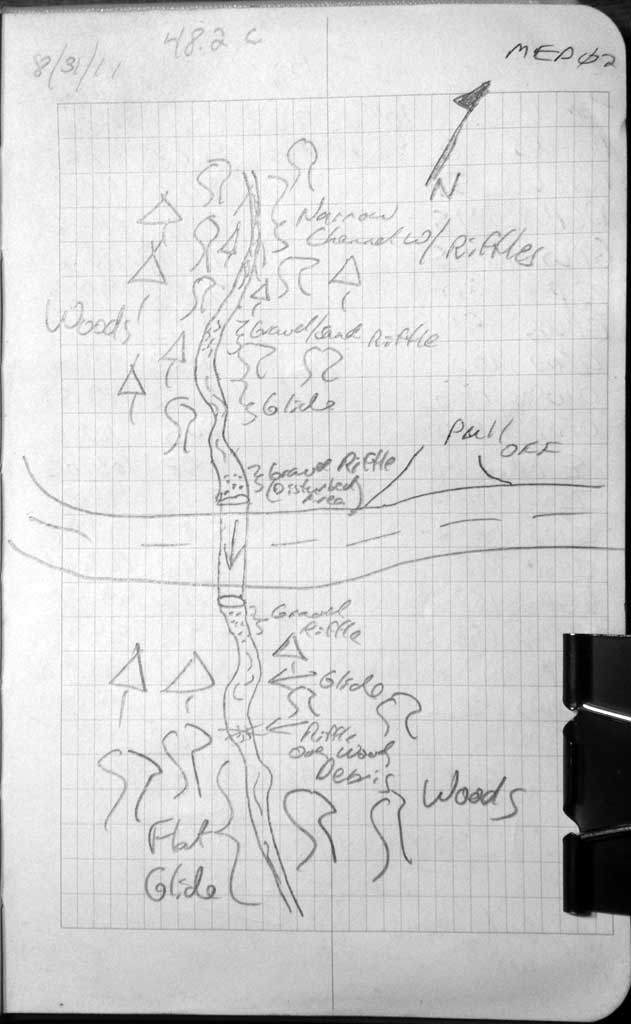 8/31/11
48.2 C
MED02
N
Narrow
Channel w/ Riffles
Woods
Gravel/Sand Riffle
Glide
Pull
OFF
Gravel Riffle
(Disturbed
Area)
Gravel
Riffle
Glide
Riffle
over wood
Debris
Woods
Flat
Glide